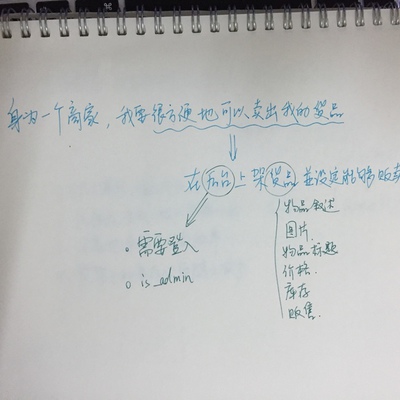 身为一个商家，我要很方便地可以卖出我的货品
在后台上架货品並设定能够贩卖
需要登入
is_admin
物品叙述
图片.
物品标题
价格.
库存
贩售.